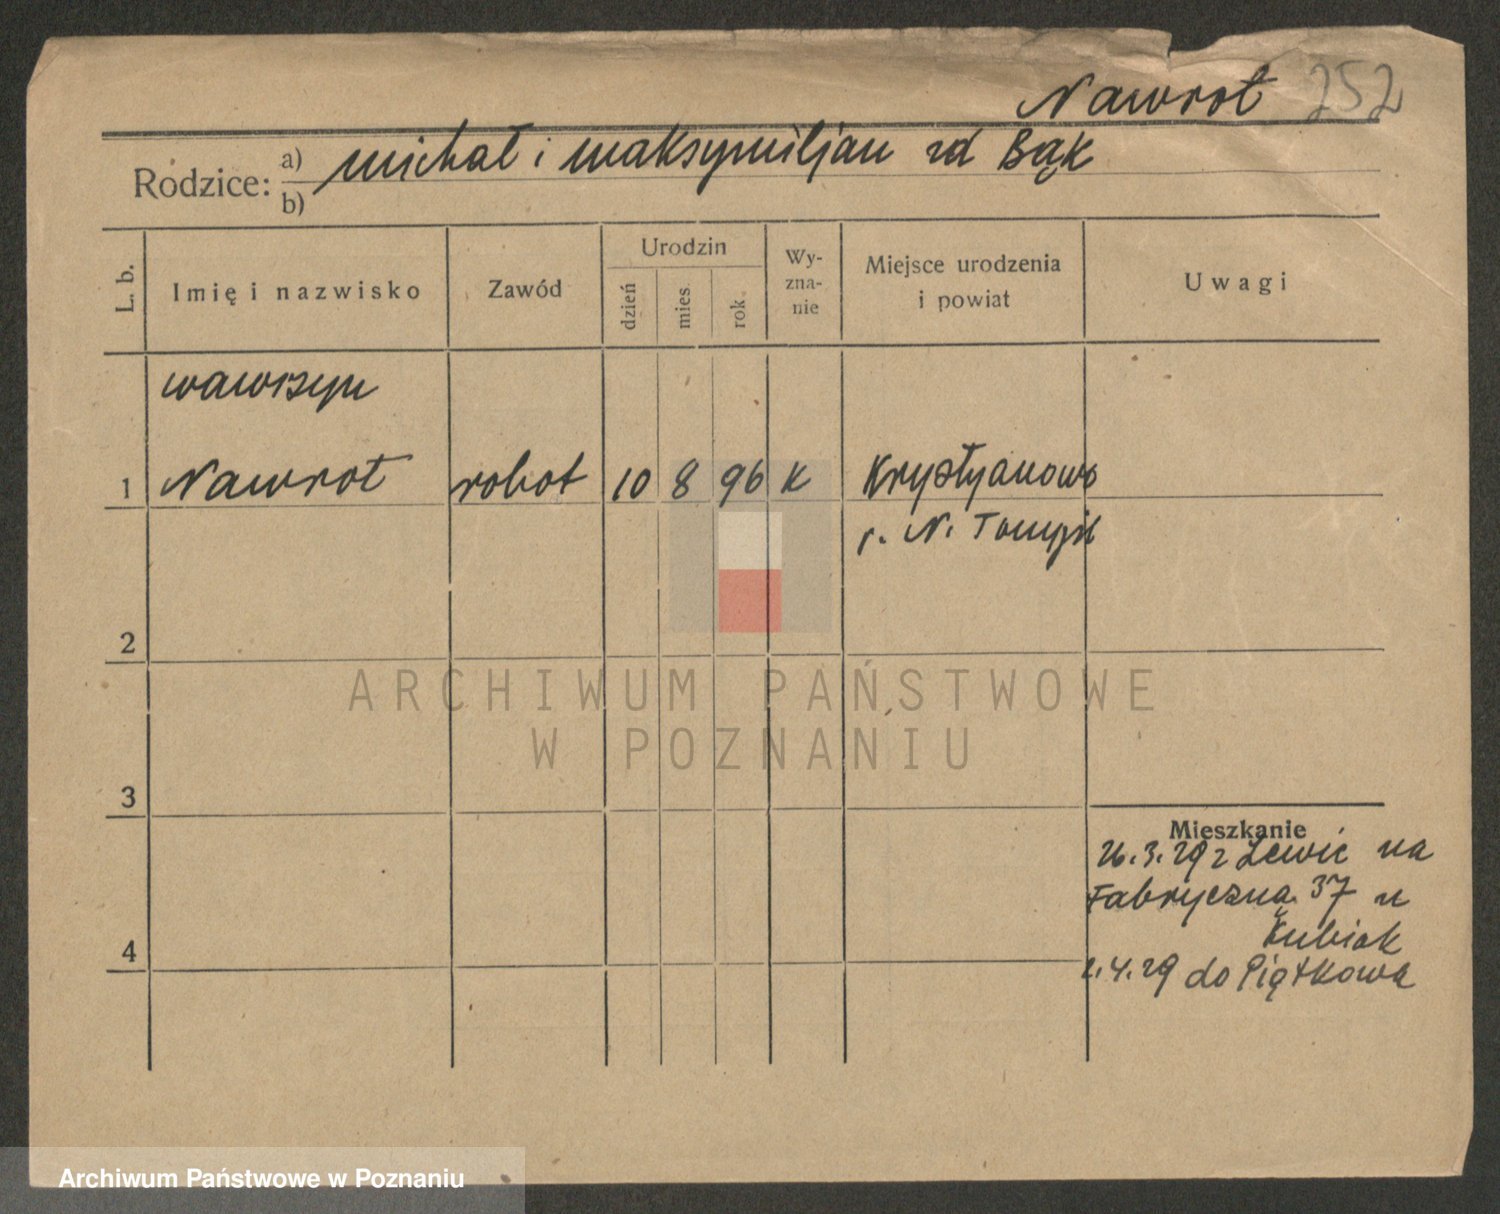 Nawrot 252
Rodzice: a) michał i maksymiljan zd Bąk
b)
L. b.
Imię i nazwisko
Zawód
Urodzin
dzień
mies.
rok.
Wy-
zna-
nie
Miejsce urodzenia
i powiat
Uwagi
wawrzyn
1 Nawrot robot 10 8 96 K Krystyanowo
p. N. Tomyśl
2
ARCHIWUM PAŃSTWOWE
W POZNANIU
3
Mieszkanie
26.3.29 z Lewic na
Fabryczna 37 u
Kubiak
4
2.4.29 do Piątkowa
Archiwum Państwowe w Poznaniu